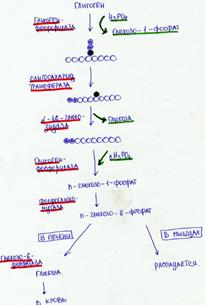 ГЛИКОГЕН
ГЛИКОГЕН-
ФОСФОРИЛАЗА
H₃PO₄
ГЛЮКОЗО-1-ФОСФАТ
ОЛИГОСАХАРИД
ТРАНСФЕРАЗА
α-1,6-ГЛЮКО-
ЗИДАЗА
ГЛЮКОЗА
ГЛИКОГЕН-
ФОСФОРИЛАЗА
nH₃PO₄
n-ГЛЮКОЗО-1-ФОСФАТ
ФОСФОГЛЮКО-
МУТАЗА
n-ГЛЮКОЗО-6-ФОСФАТ
В ПЕЧЕНИ
В МЫШЦАХ
ГЛЮКОЗО-6-
ФОСФАТАЗА
ГЛЮКОЗА
РАСПАДАЕТСЯ
В КРОВЬ